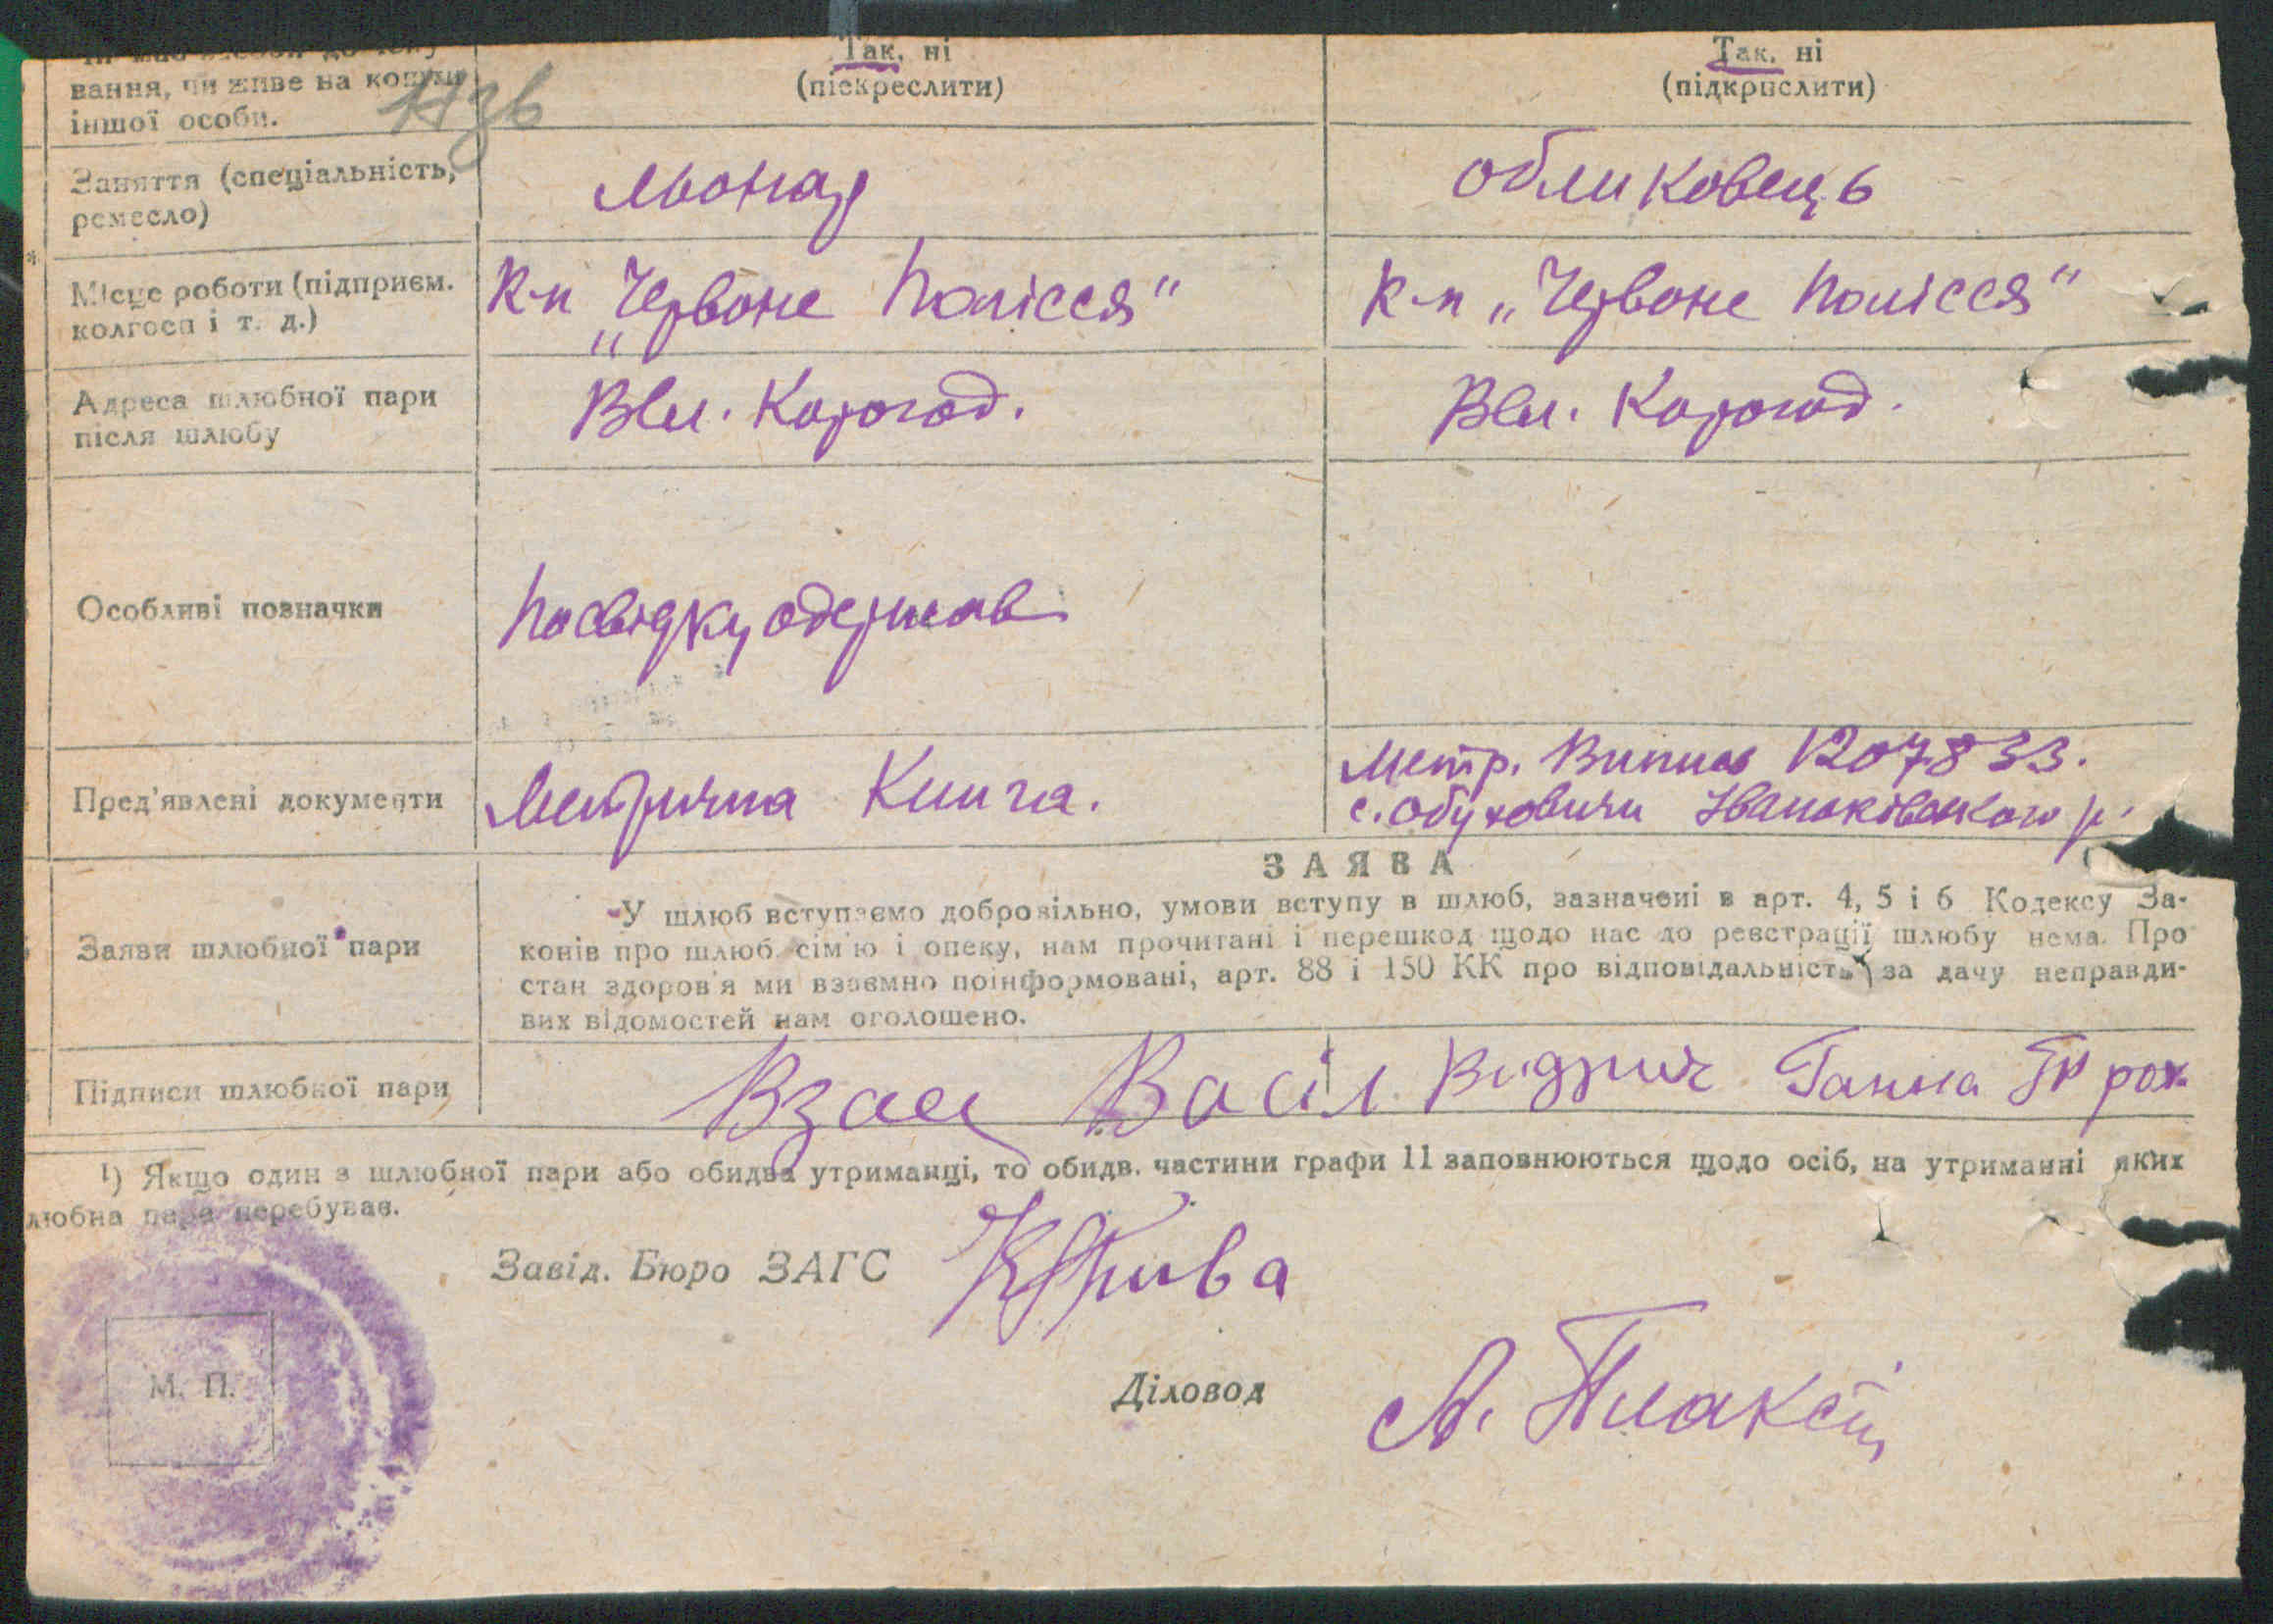 Так, ні
Так, ні
вання, чи живе на кошти
(піскреслити)
(підкрислити)
іншої особи.
Заняття (спеціальність,
ремесло)
обликовець
Місце роботи (підприєм.
колгосп і т. д.)
К-п „Червоне Полісся"
К-п „Червоне Полісся"
Адреса шлюбної пари
після шлюбу
Вел. Корогод.
Вел. Корогод.
Особливі позначки
Посвідку одержав
Пред'явлені документи
Метрична Книга.
Метр. Випись 1207833.
с. Обуховичи Іванківського р.
ЗАЯВА
Заяви шлюбної пари
У шлюб вступаємо добровільно, умови вступу в шлюб, зазначені в арт. 4, 5 і 6 Кодексу За-
конів про шлюб сім'ю і опеку, нам прочитані і перешкод щодо нас до реєстрації шлюбу нема. Про
стан здоров'я ми взаємно поінформовані, арт. 88 і 150 КК про відповідальність за дачу неправди-
вих відомостей нам оголошено.
Підписи шлюбної пари
Васіл Видрич Ганна
1) Якщо один з шлюбної пари або обидва утриманці, то обидв. частини графи 11 заповнюються щодо осіб, на утриманні яких
любна пара перебуває.
Завід. Бюро ЗАГС
М. П.
Діловод